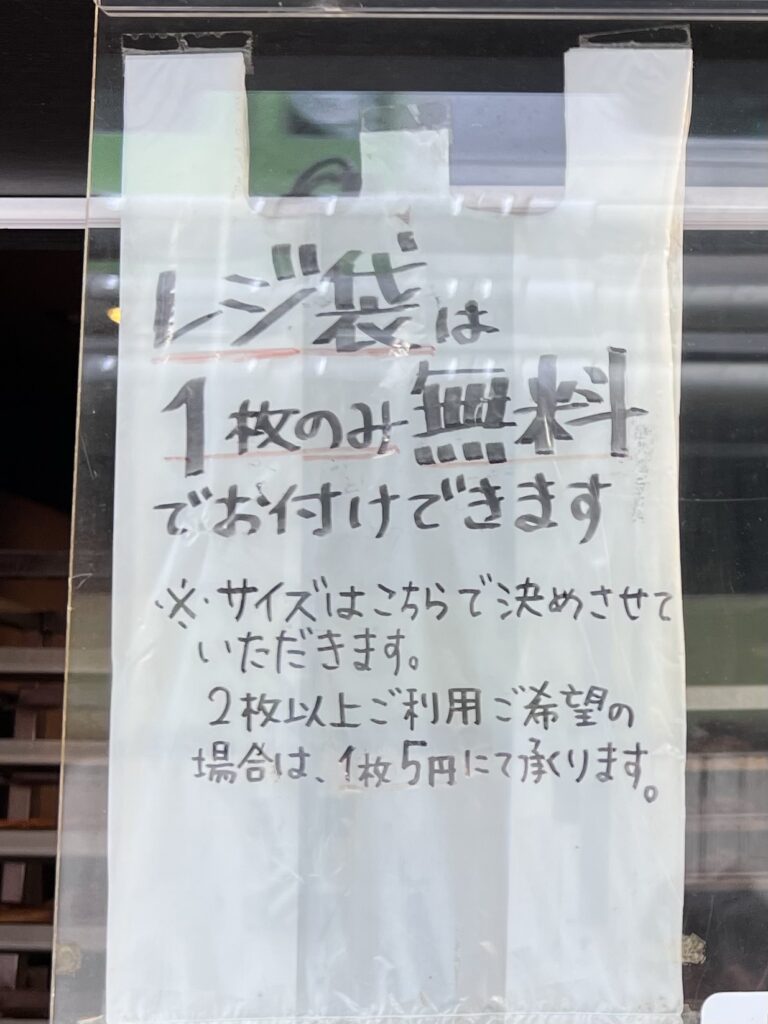 レジ袋は
1枚のみ無料
でお付けできます
※サイズはこちらで決めさせて
いただきます。
2枚以上ご利用ご希望の
場合は、1枚5円にて承くります。